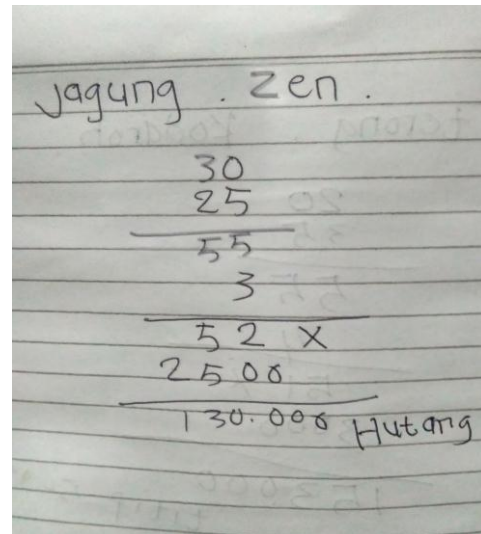 Jagung . Zen .
30
25
55
3
52 X
2500
130.000 Hutang